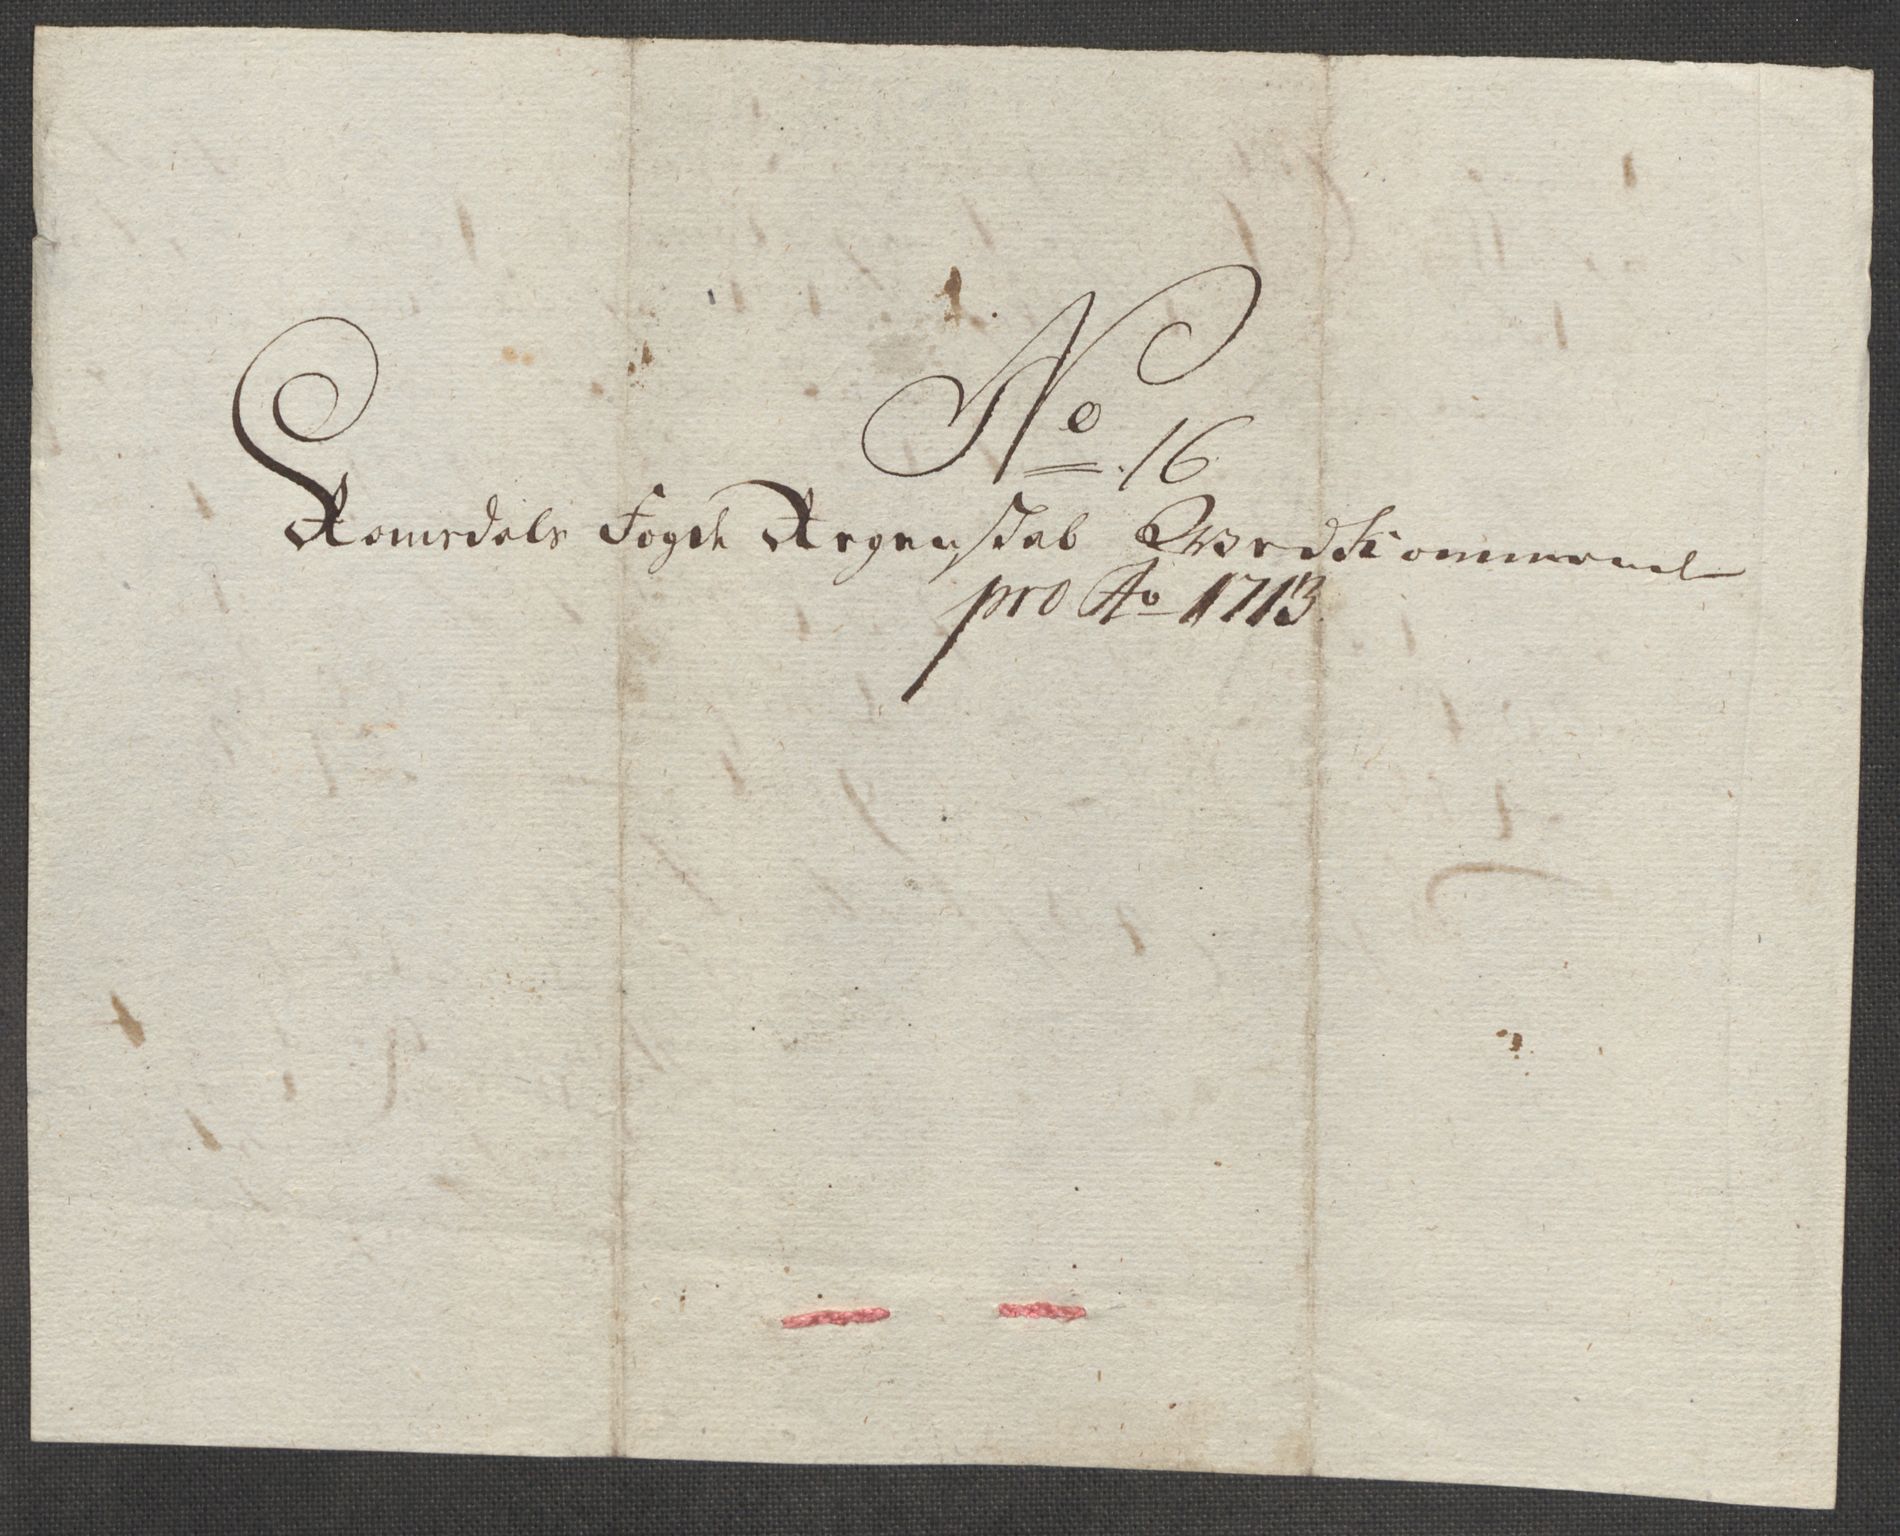 No 16
Romsdals Fogds Regenskab Vedkommend
pro Ao 1713